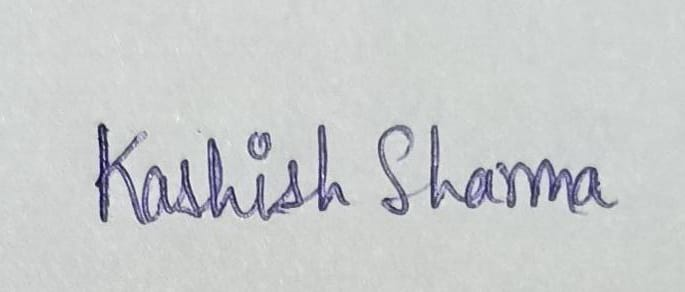 Kashish Sharma